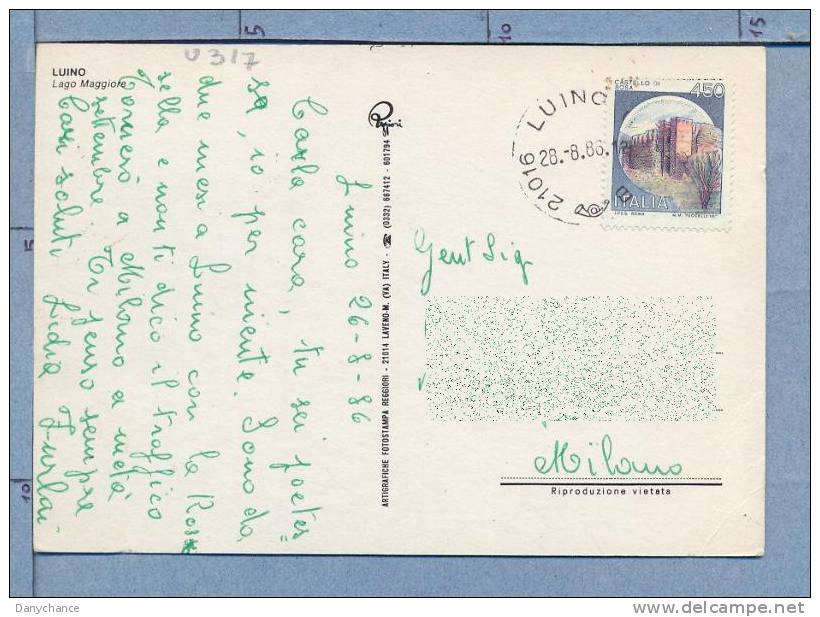 5
10
15
5
10
U317
LUINO
Lago Maggiore
Luino 26-8-86
Carla cara, tu sei poetes=
sa, io per niente. Sono da
due mesi a Luino con la Ros
sella e non ti dico il traffico
Tornerò a Milano a metà
settembre Ti penso sempre
Cari saluti Lidia Furlan
ARTIGRAFICHE FOTOSTAMPA REGGIORI - 21014 LAVENO-M. (VA) ITALY - ☎ (0332) 667412 - 601794
Reggiori
CASTELLO DI
450
ITALIA
I.P.Z.S. ROMA
21016 LUINO
28.-8.86.
Gent Sig
Milano
Riproduzione vietata
Danychance
delcampe.net